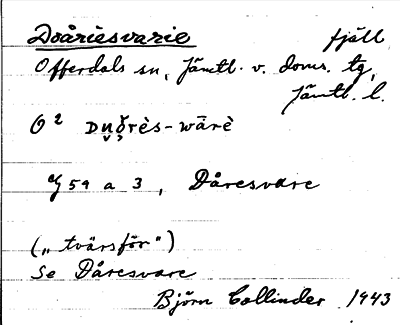 Doåriesvarie fjäll
Offerdals sn, Jämtl. v. doms. tg,
Jämtl. l.
O²
G 59 a 3, Dåresvare
("tvärsför")
Se Dåresvare
Björn Collinder 1943